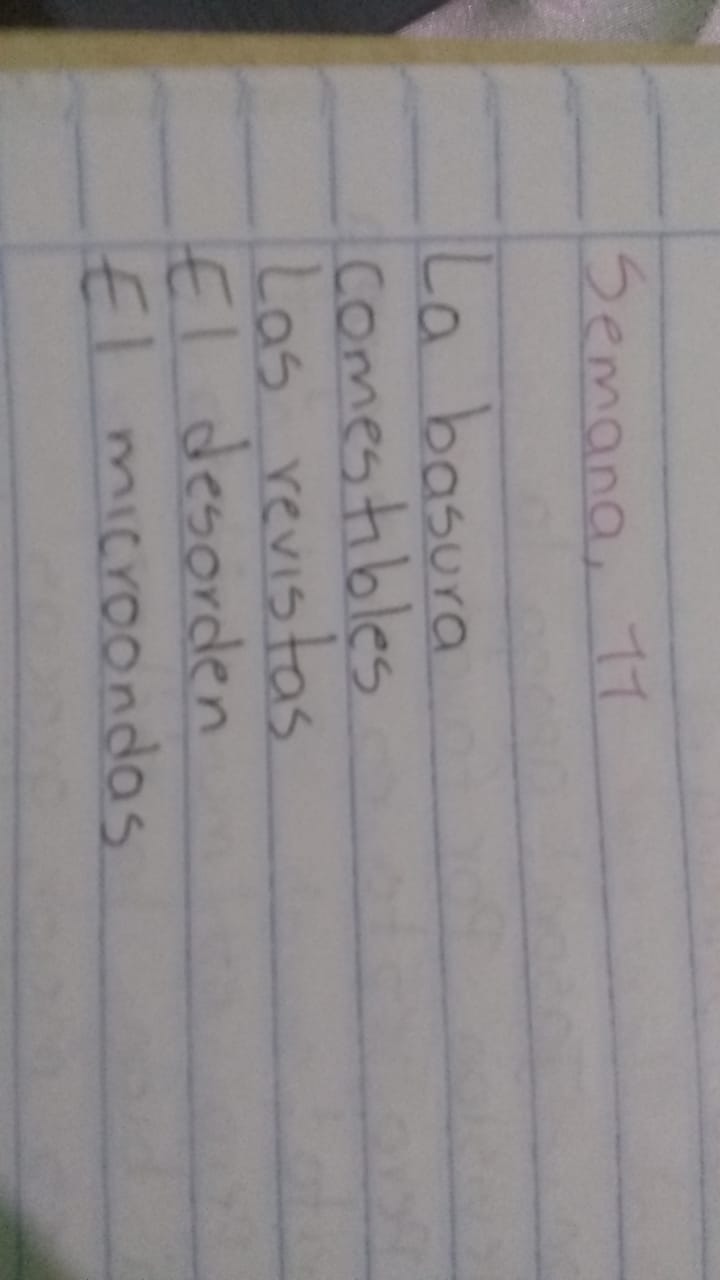 Semana, 11
La basura
comestibles
Las revistas
El desorden
El microondas